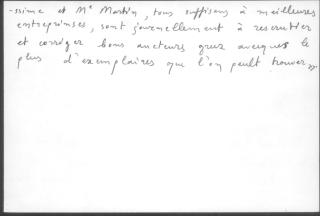 -ssime et Me Martin, tous suffisans à meilleures
entreprinses, sont journellement à rescrutier
et corriger bons aucteurs grez avecques le
plus d'exemplaires que l'on peult trouver